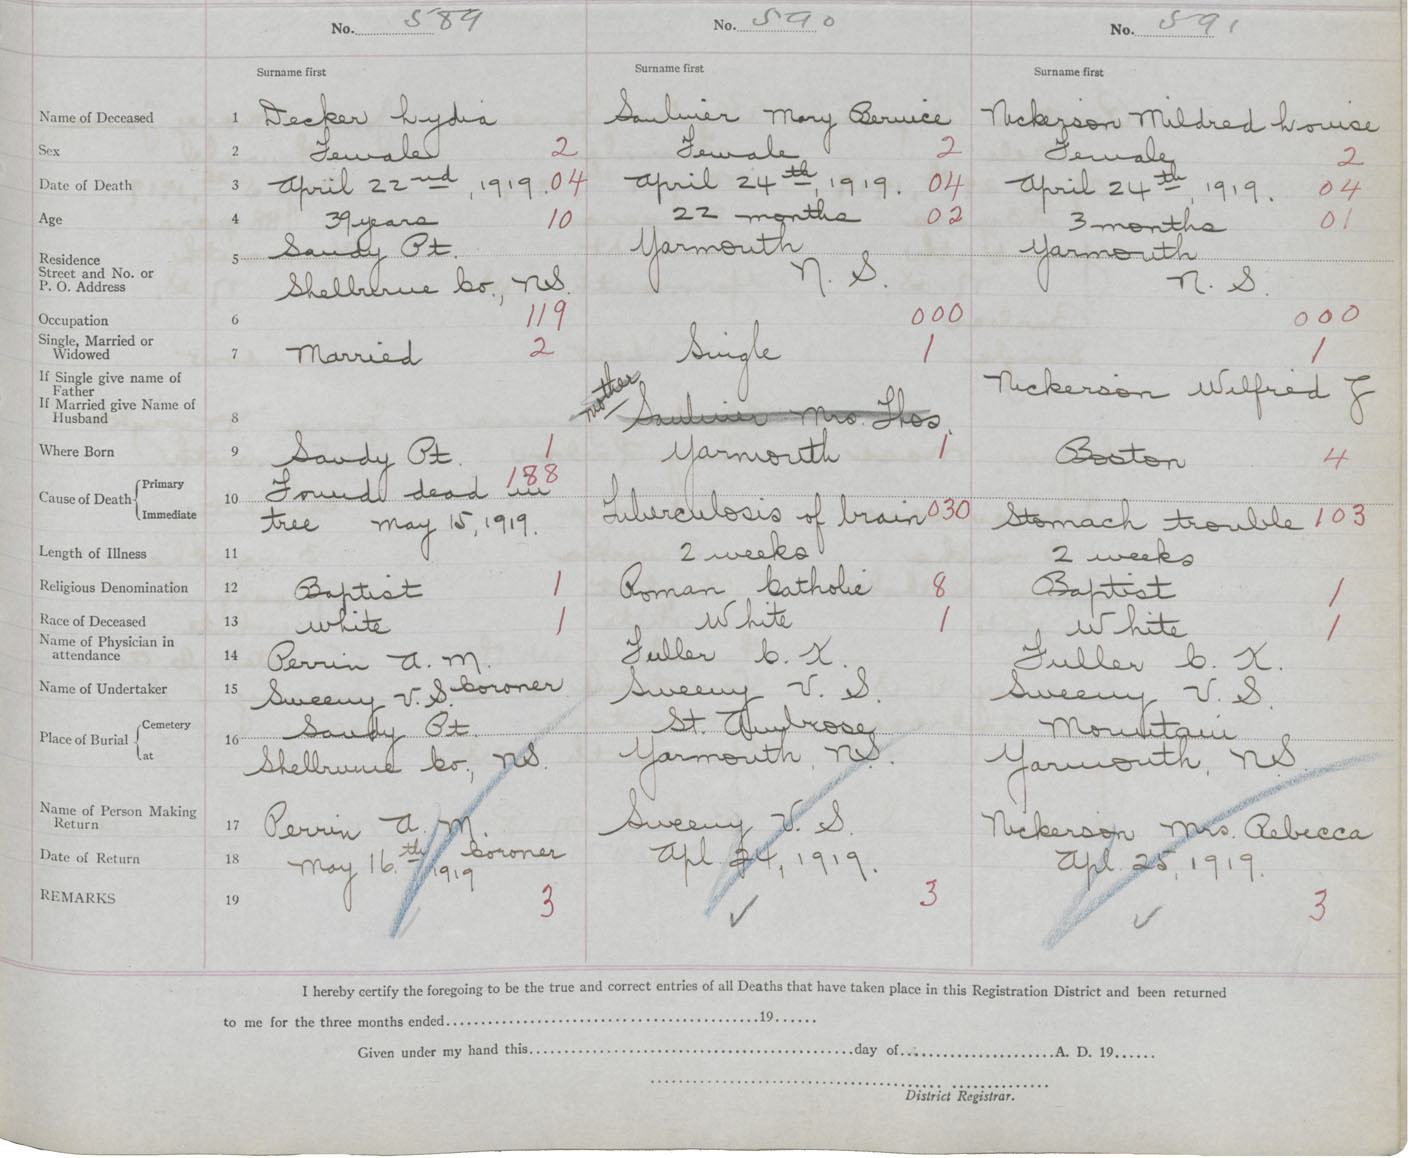 No. 589 No. 590 No. 591
Surname first Surname first Surname first
Name of Deceased 1 Decker Lydia Saulnier Mary Bernice Nickerson Mildred Louise
Sex 2 Female 2 Female 2 Female 2
Date of Death 3 April 22nd, 1919. 04 April 24th, 1919. 04 April 24th, 1919. 04
Age 4 39 years 10 22 months 02 3 months 01
Residence 5 Sandy Pt. Yarmouth Yarmouth
Street and No. or
P. O. Address Shelburne Co., N.S. N. S. N. S.
Occupation 6 119 000 000
Single, Married or
Widowed 7 Married 2 Single 1 1
If Single give name of
Father Nickerson Wilfred J
If Married give Name of mother
Husband 8 Saulnier Mrs. Thos.
Where Born 9 Sandy Pt. 1 Yarmouth 1 Boston 4
Cause of Death Primary 10 Found dead in 188
Immediate tree May 15, 1919. Tuberculosis of brain 030 Stomach trouble 103
Length of Illness 11 2 weeks 2 weeks
Religious Denomination 12 Baptist 1 Roman Catholic 8 Baptist 1
Race of Deceased 13 White 1 White 1 White 1
Name of Physician in
attendance 14 Perrin A. M. Fuller C. K. Fuller C. K.
Name of Undertaker 15 Sweeny V. S. Coroner Sweeny V. S. Sweeny V. S.
Place of Burial Cemetery 16 Sandy Pt. St. Ambrose Mountain
at Shelburne Co., N.S. Yarmouth, N.S. Yarmouth, N.S.
Name of Person Making
Return 17 Perrin A. M. Sweeny V. S. Nickerson Mrs. Rebecca
Date of Return 18 May 16th 1919 Coroner Apl. 24, 1919. Apl. 25, 1919.
REMARKS 19 3 3 3
I hereby certify the foregoing to be the true and correct entries of all Deaths that have taken place in this Registration District and been returned
to me for the three months ended 19
Given under my hand this day of A. D. 19
District Registrar.